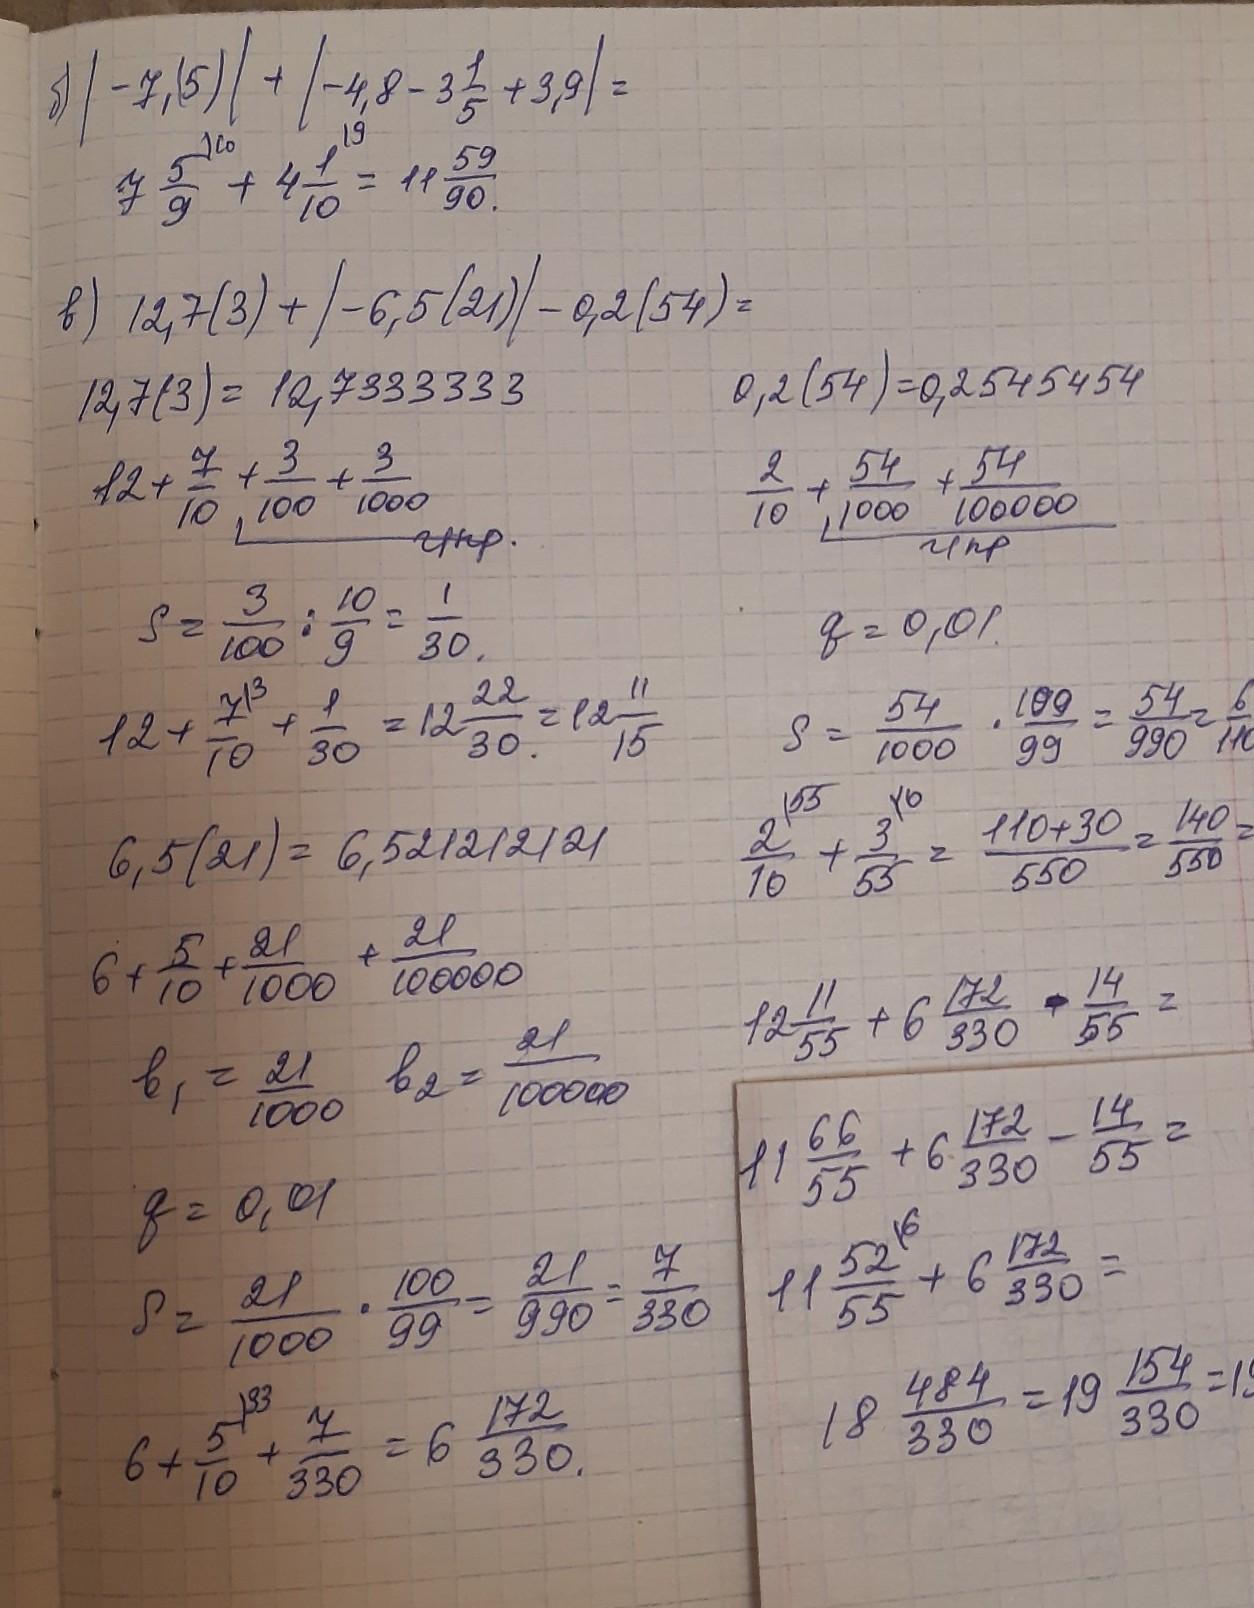 б) |-7,(5)| + |-4,8 - 3 1/5 + 3,9| =
7 5/9 \10 + 4 1/10 \9 = 11 59/90.
в) 12,7(3) + |-6,5(21)| - 0,2(54) =
12,7(3) = 12,7333333
12 + 7/10 + 3/100 + 3/1000
гпр.
S = 3/100 : 10/9 = 1/30.
12 + 7/10 \3 + 1/30 = 12 22/30. = 12 11/15
6,5(21) = 6,521212121
6 + 5/10 + 21/1000 + 21/100000
b1 = 21/1000 b2 = 21/100000
q = 0,01
S = 21/1000 · 100/99 = 21/990 = 7/330
6 + 5/10 \33 + 7/330 = 6 172/330.
0,2(54) = 0,2545454
2/10 + 54/1000 + 54/100000
гпр
q = 0,01.
S = 54/1000 · 100/99 = 54/990 = 6/110
2/10 \55 + 3/55 \10 = 110+30/550 = 140/550 =
12 11/55 + 6 172/330 - 14/55 =
11 66/55 + 6 172/330 - 14/55 =
11 52/55 \6 + 6 172/330 =
18 484/330 = 19 154/330 = 19